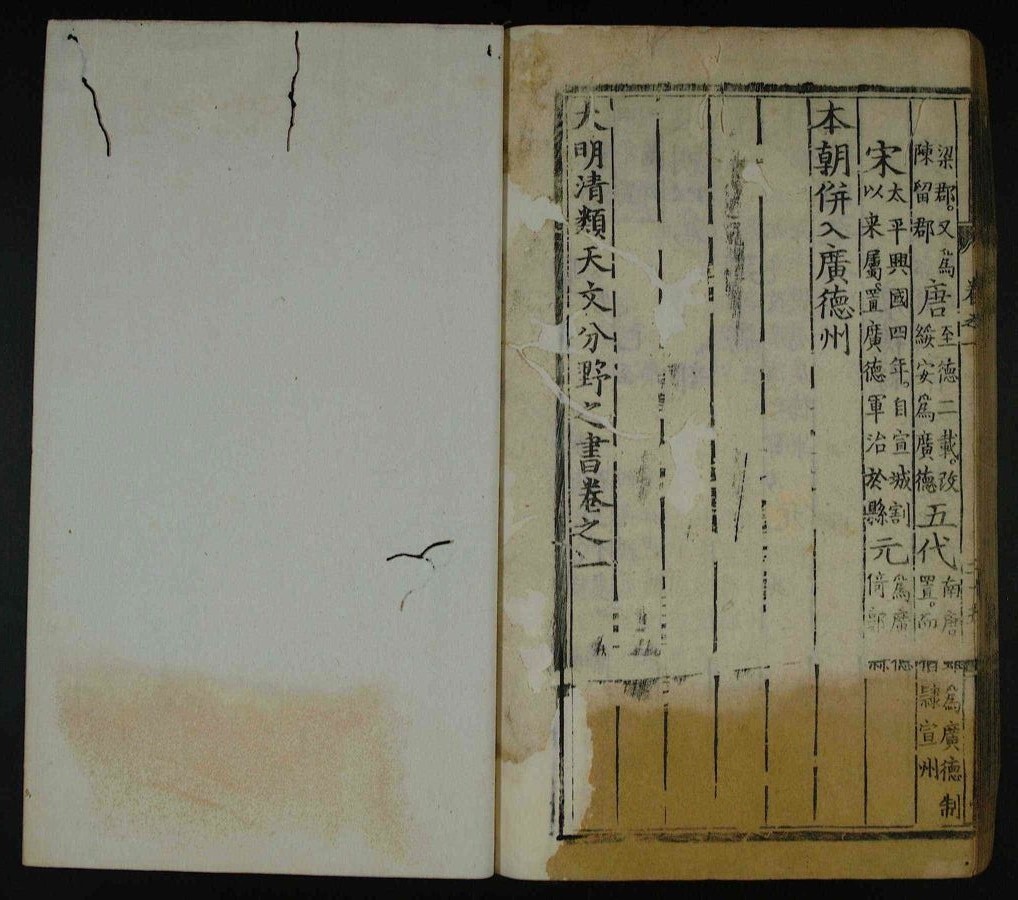 卷之一
梁郡。又為陳留郡唐至德二載。改綏安為廣德五代南唐為廣德制置。隸宣州
宋太平興國四年。自宣城割以来屬。置廣德軍治於縣元為廣德倚郭
本朝併入廣德州
大明清類天文分野之書卷之一